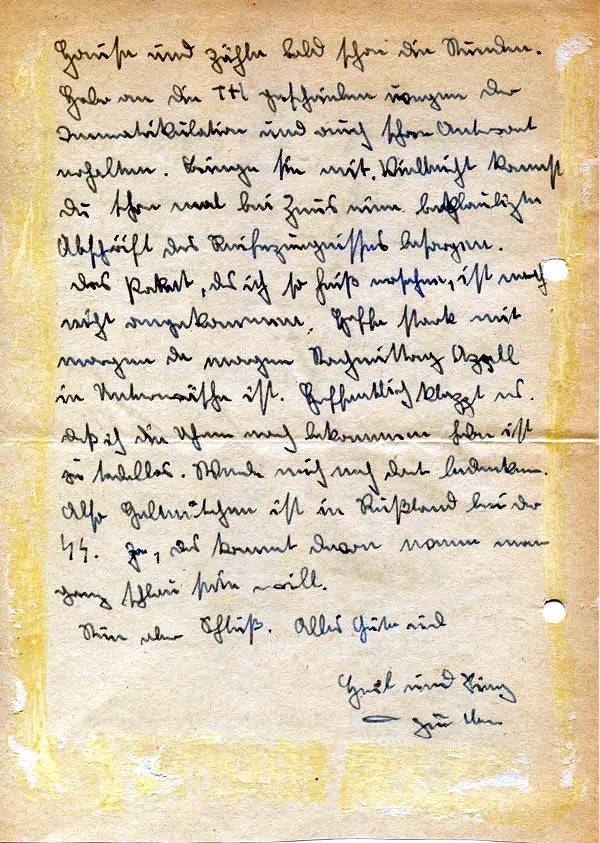 Hause und zähle bald schon die Stunden.
Habe an die TH geschrieben wegen der
Immatrikulation und auch schon Antwort
erhalten. Bringe sie mit. Vielleicht kannst
du schon mal bei Zeus eine beglaubigte
Abschrift des Reifezeugnisses besorgen.
Das Paket, das ich so heiß ersehne, ist noch
nicht angekommen. Hoffe stark mit
morgen da morgen Nachmittag Appell
in Unterwäsche ist. Hoffentlich klappt es.
daß ich die Uhren noch bekommen habe ist
ja tadellos. Werde mich noch dort bedanken.
Also ist in Rußland bei der
SS. Ja, das kommt davon wenn man
ganz schlau sein will.
Nun aber Schluß. Alles Gute und
Heil und Sieg